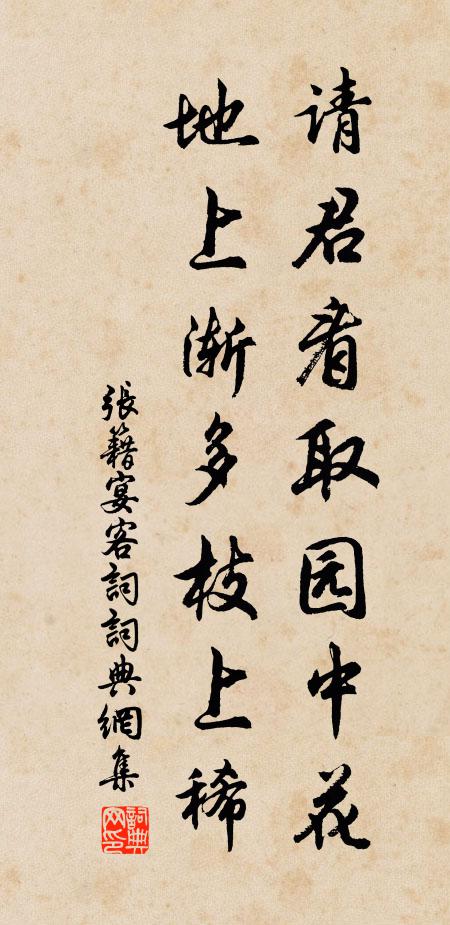 请君看取园中花
地上渐多枝上稀
張籍宴客詞詞典網集
詞典网印